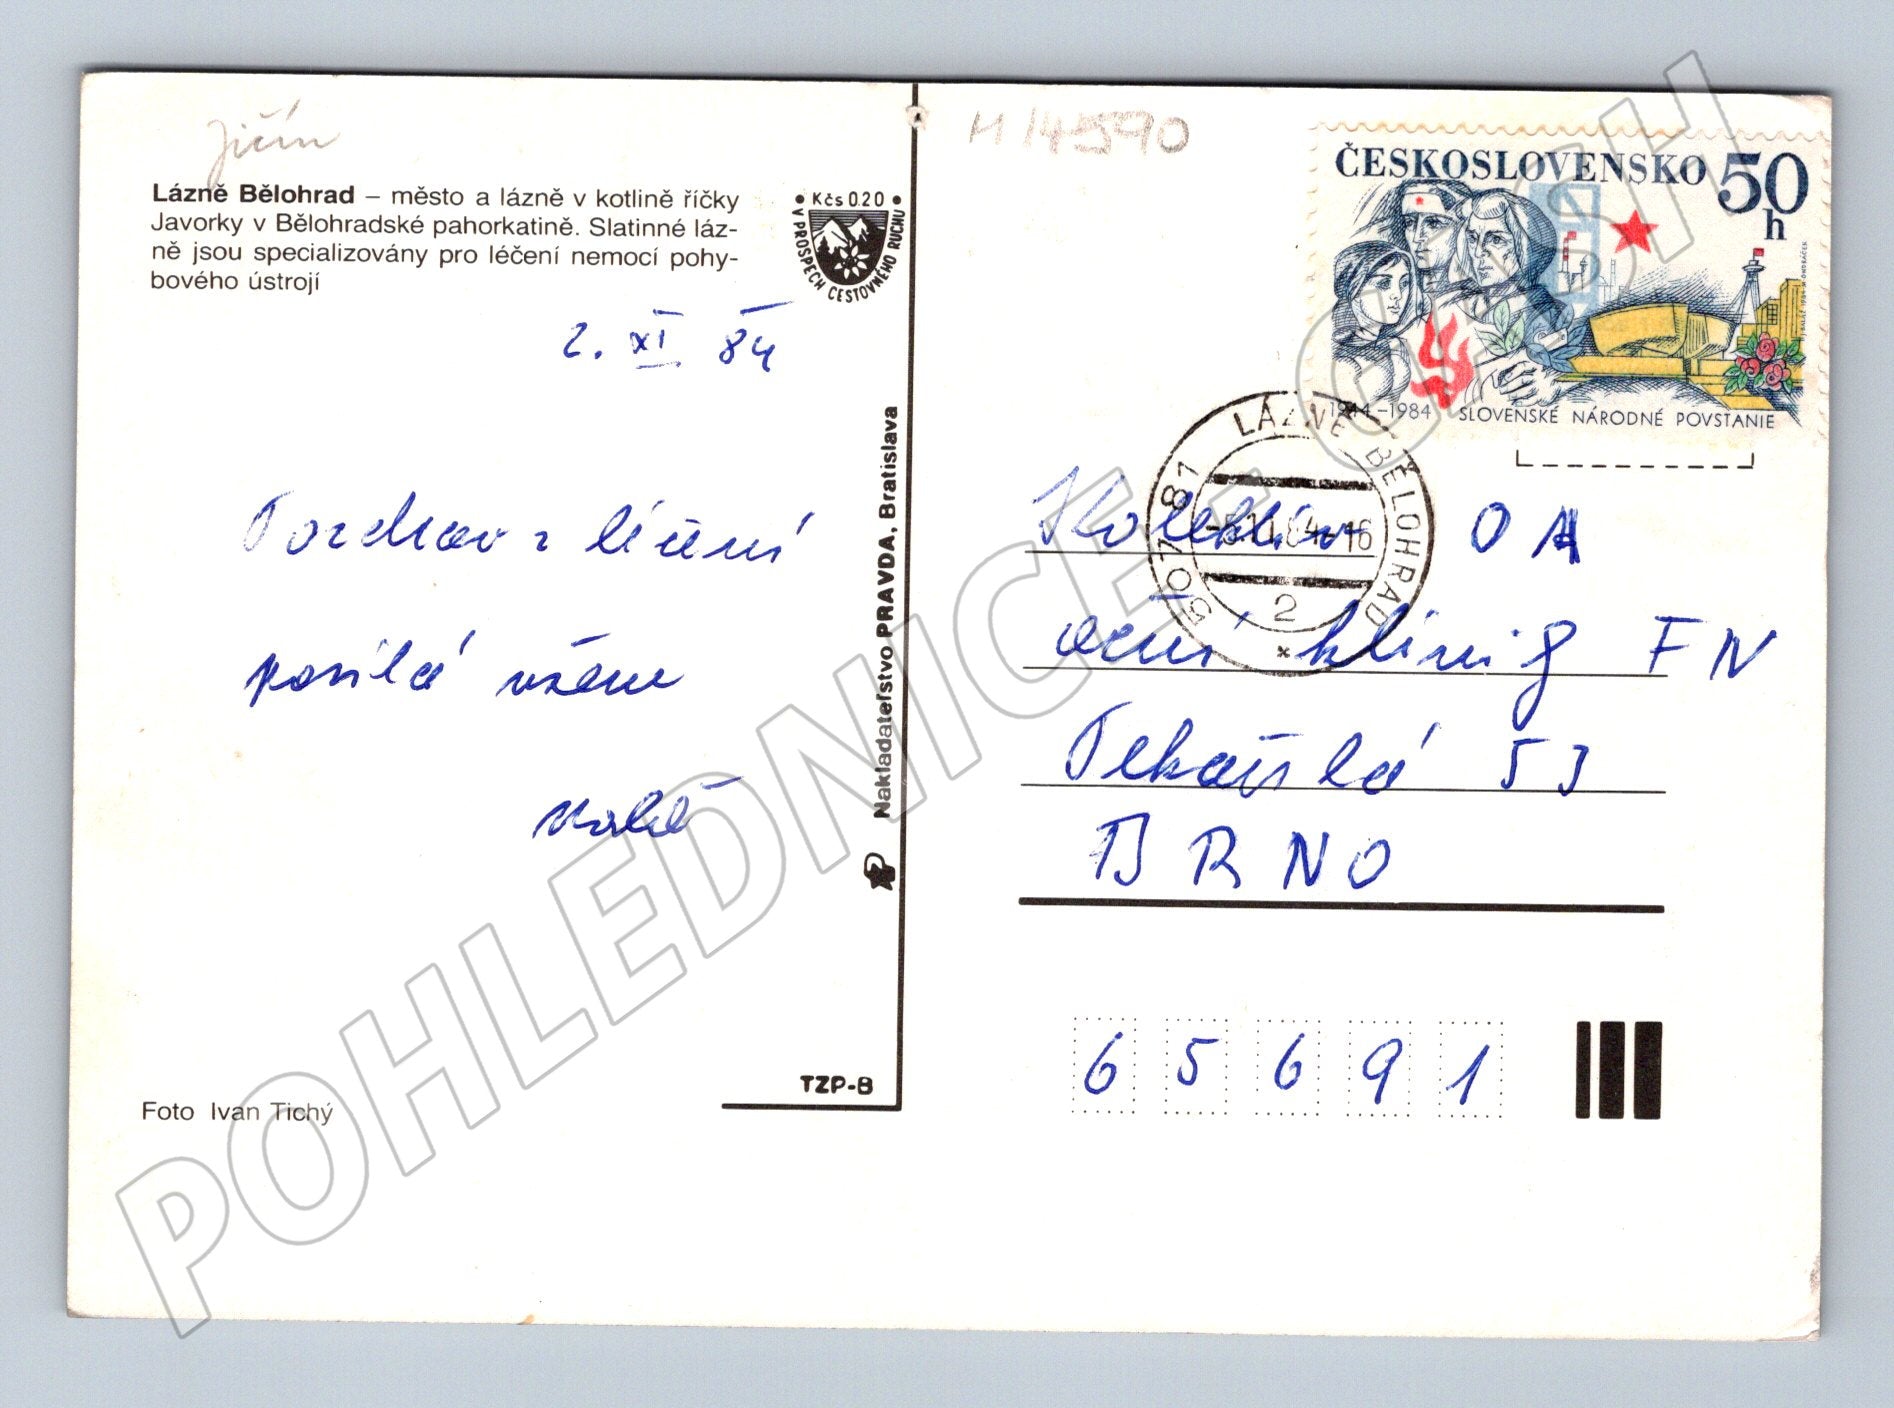 Jičín
Lázně Bělohrad – město a lázně v kotlině říčky
Javorky v Bělohradské pahorkatině. Slatinné láz-
ně jsou specializovány pro léčení nemocí pohy-
bového ústrojí
• Kčs 0.20 •
V PROSPĚCH CESTOVNÉHO RUCHU
2. XI 84
Pozdrav z léčení
posílá všem
Nakladateľstvo PRAVDA, Bratislava
TZP-B
Foto Ivan Tichý
H 14590
ČESKOSLOVENSKO 50
h
1944–1984 SLOVENSKÉ NÁRODNÉ POVSTANIE
507 81 LÁZNĚ BĚLOHRAD
-5.11.84-16
2
*
Kolektiv OA
oční klinik FN
Pekařská 53
BRNO
6 5 6 9 1
POHLEDNICE - CASH